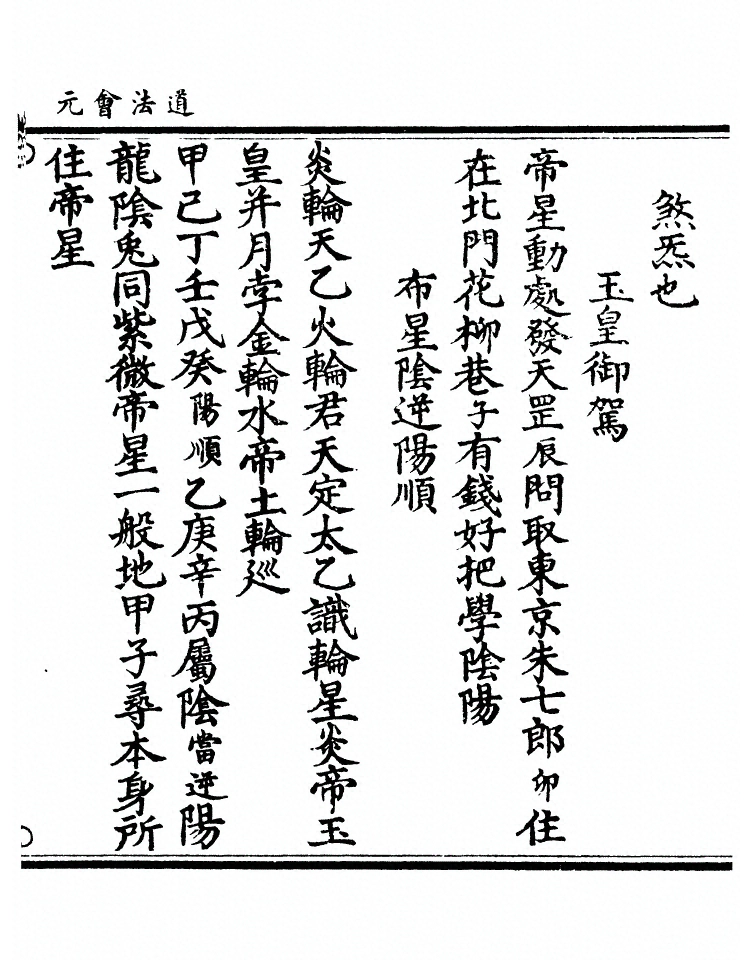 元會法道
煞炁也
玉皇御駕
帝星動處發天罡辰問取東京朱七郎卯住
在北門花柳巷子有錢好把學陰陽
布星陰逆陽順
炎輪天乙火輪君天定太乙識輪星炎帝玉
皇并月孛金輪水帝土輪巡
甲己丁壬戊癸陽順乙庚辛丙屬陰當逆陽
龍陰兎同紫微帝星一般地甲子尋本身所
住帝星